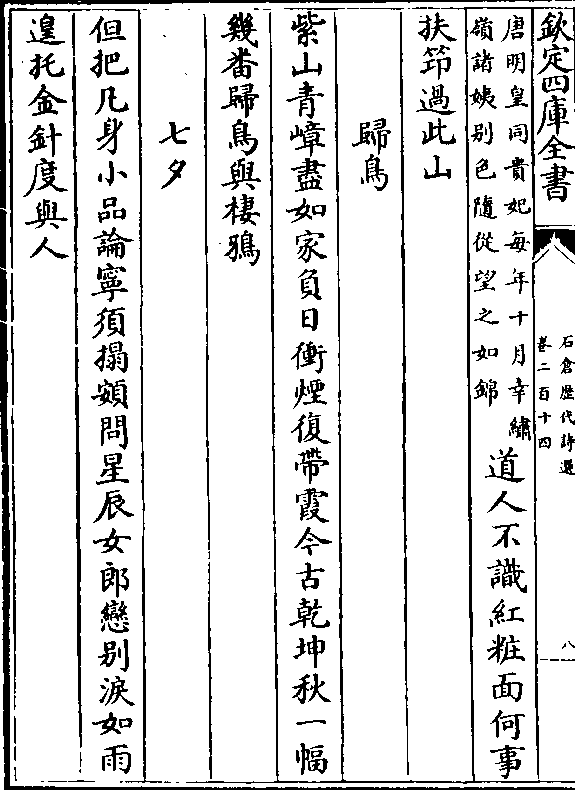 欽定四庫全書
石倉歴代詩選
卷二百十四
八
唐明皇同貴妃每年十月幸繡
嶺諸姨别色隨從望之如錦
道人不識紅粧面何事
扶笻過此山
歸鳥
紫山青嶂盡如家負日衝煙復帶霞今古乾坤秋一幅
幾畨歸鳥與棲鴉
七夕
但把凡身小品論寧須搨頞問星辰女郎戀别淚如雨
遑托金針度與人